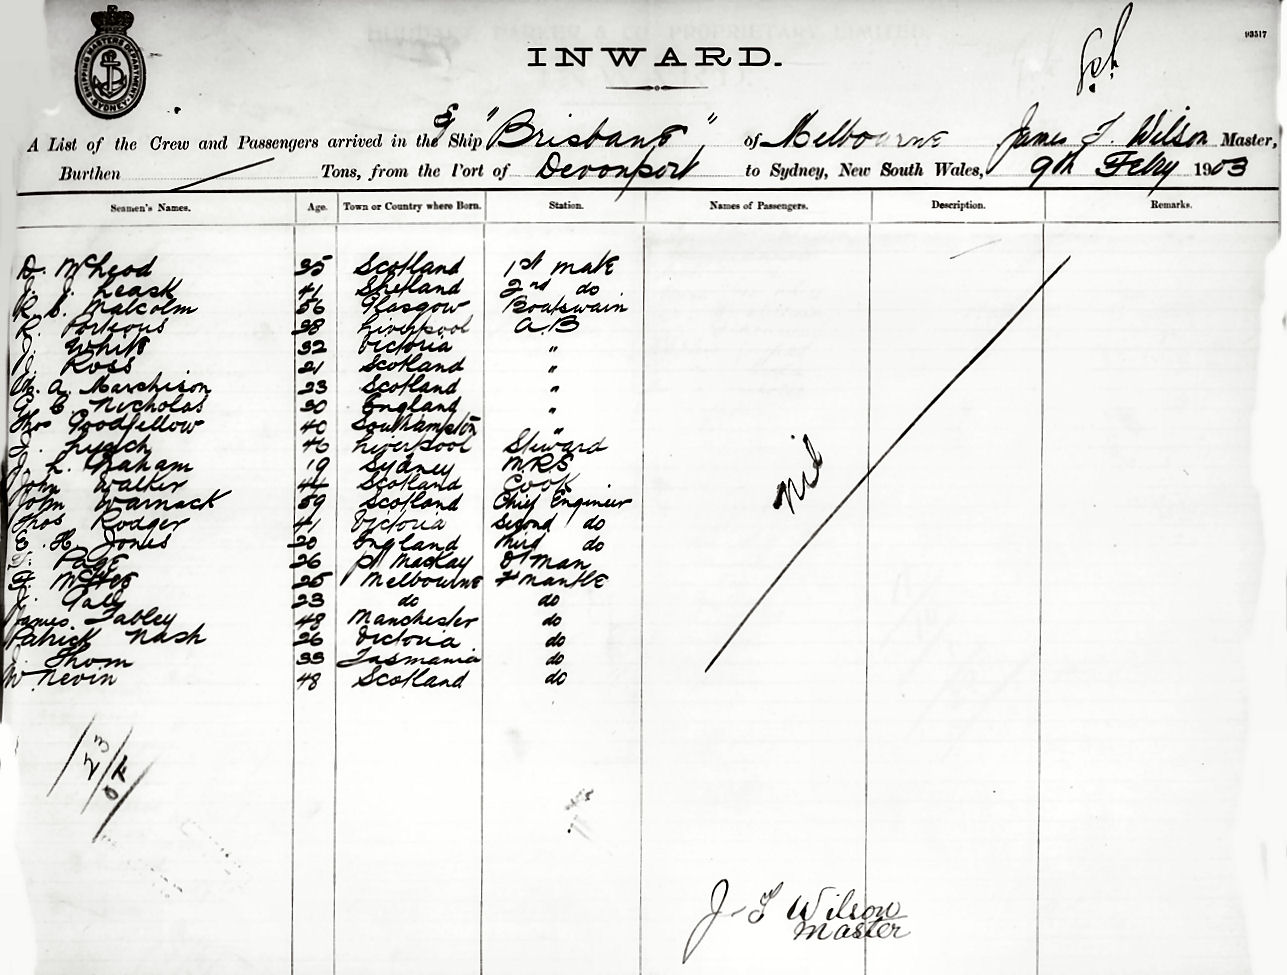 93517
SHIPPING MASTERS DEPARTMENT SYDNEY
INWARD.
A List of the Crew and Passengers arrived in the Ship "Brisbane", of Melbourne James F. Wilson Master,
Burthen Tons, from the Port of Devonport to Sydney, New South Wales, 9th Feby 1903
Seamen's Names. Age. Town or Country where Born. Station. Names of Passengers. Description. Remarks.
D. McLeod 35 Scotland 1st mate
J. J. Leask 41 Shetland 2nd do
R. S. Malcolm 56 Glasgow Boatswain
R. Porteous 38 Liverpool A.B
J. White 32 Victoria "
J. Ross 21 Scotland "
A. Murchison 23 Scotland "
G. E. Nicholas 30 England "
Thos Goodfellow 40 Southampton "
J. Lynch 40 Liverpool Steward
J. L. Graham 19 Sydney M.R.S
John Walker 44 Scotland Cook
John Warnack 59 Scotland Chief Engineer
Thos Rodger 41 Victoria Second do
E. H. Jones 20 England Third do
Page 26 Pt Mackay D man
F. 25 Melbourne F mantle
J. Gally 23 do do
James Tabley 48 Manchester do
Patrick Nash 26 Victoria do
J. Thom 33 Tasmania do
W Nevin 48 Scotland do
nil
23
OK
J. F Wilson
Master